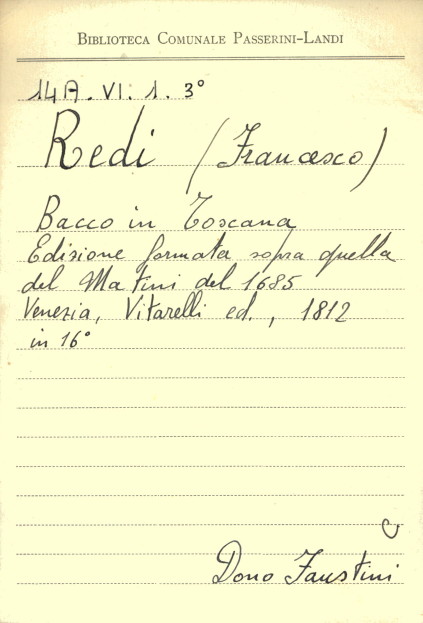 BIBLIOTECA COMUNALE PASSERINI-LANDI
14A. VI. 1. 3°
Redi (Francesco)
Bacco in Toscana
Edisione formata sopra quella
del Matini del 1685
Venezia, Vitarelli ed., 1812
in 16°
C
Dono Faustini